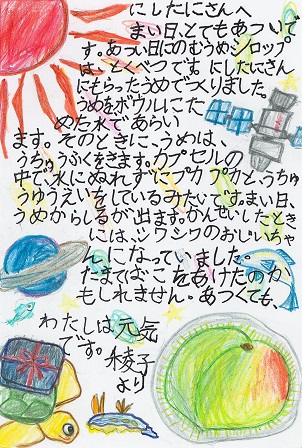 にしたにさんへ
まい日、とてもあついで
す。あつい日にのむうめシロップ
は、とくべつです。にしたにさん
にもらったうめでつくりました。
うめをボウルにこた
めた水であらい
ます。そのときに、うめは、
うちゅうふくをきます。カプセルの
中で、水にぬれずにプカプカと、うちゅ
うゆうえいをしているみたいです。まい日、
うめからしるが出ます。かんせいしたとき
には、シワシワのおじいちゃ
んになっていました。
たまてばこをあけたのか
もしれません。あつくても、
わたしは元気
です。
綾子
より